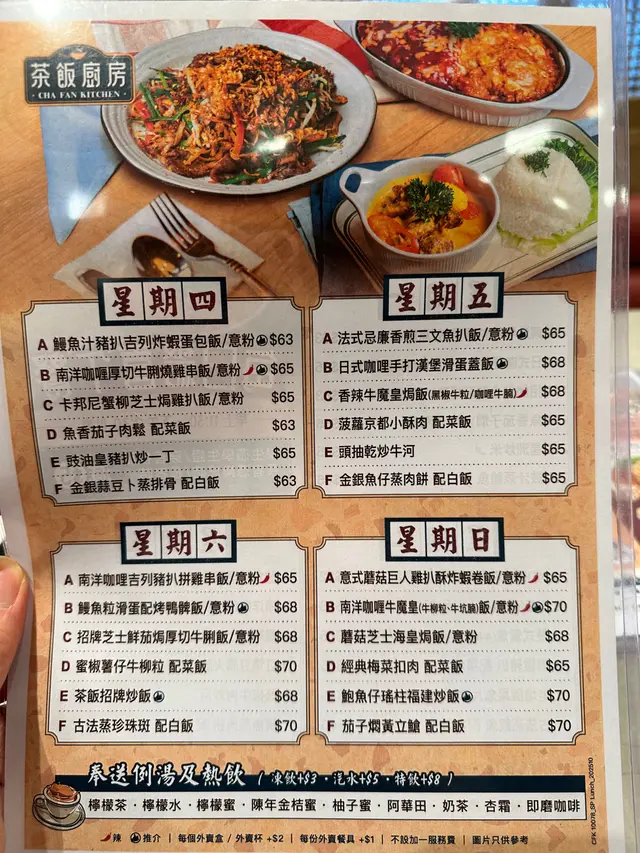 茶飯廚房
· CHA FAN KITCHEN ·
星期四
A 鰻魚汁豬扒吉列炸蝦蛋包飯/意粉 $63
B 南洋咖喱厚切牛脷燒雞串飯/意粉 $65
C 卡邦尼蟹柳芝士焗雞扒飯/意粉 $65
D 魚香茄子肉鬆 配菜飯 $63
E 豉油皇豬扒炒一丁 $65
F 金銀蒜豆卜蒸排骨 配白飯 $63
星期五
A 法式忌廉香煎三文魚扒飯/意粉 $65
B 日式咖哩手打漢堡滑蛋蓋飯 $68
C 香辣牛魔皇焗飯(黑椒牛粒/咖喱牛腩) $68
D 菠蘿京都小酥肉 配菜飯 $65
E 頭抽乾炒牛河 $65
F 金銀魚仔蒸肉餅 配白飯 $65
星期六
A 南洋咖哩吉列豬扒拼雞串飯/意粉 $65
B 鰻魚粒滑蛋配烤鴨髀飯/意粉 $68
C 招牌芝士鮮茄焗厚切牛脷飯/意粉 $68
D 蜜椒薯仔牛柳粒 配菜飯 $70
E 茶飯招牌炒飯 $68
F 古法蒸珍珠斑 配白飯 $70
星期日
A 意式蘑菇巨人雞扒酥炸蝦卷飯/意粉 $65
B 南洋咖喱牛魔皇(牛柳粒、牛坑腩)飯/意粉 $70
C 蘑菇芝士海皇焗飯/意粉 $68
D 經典梅菜扣肉 配菜飯 $65
E 鮑魚仔瑤柱福建炒飯 $70
F 茄子燜黃立鱠 配白飯 $70
奉送例湯及熱飲 ( 凍飲+$3 · 汽水+$5 · 特飲+$8 )
檸檬茶 · 檸檬水 · 檸檬蜜 · 陳年金桔蜜 · 柚子蜜 · 阿華田 · 奶茶 · 杏霜 · 即磨咖啡
辣 推介 | 每個外賣盒 / 外賣杯 +$2 | 每份外賣餐具 +$1 | 不設加一服務費 | 圖片只供參考
CFK 10078_SP Lunch_202510